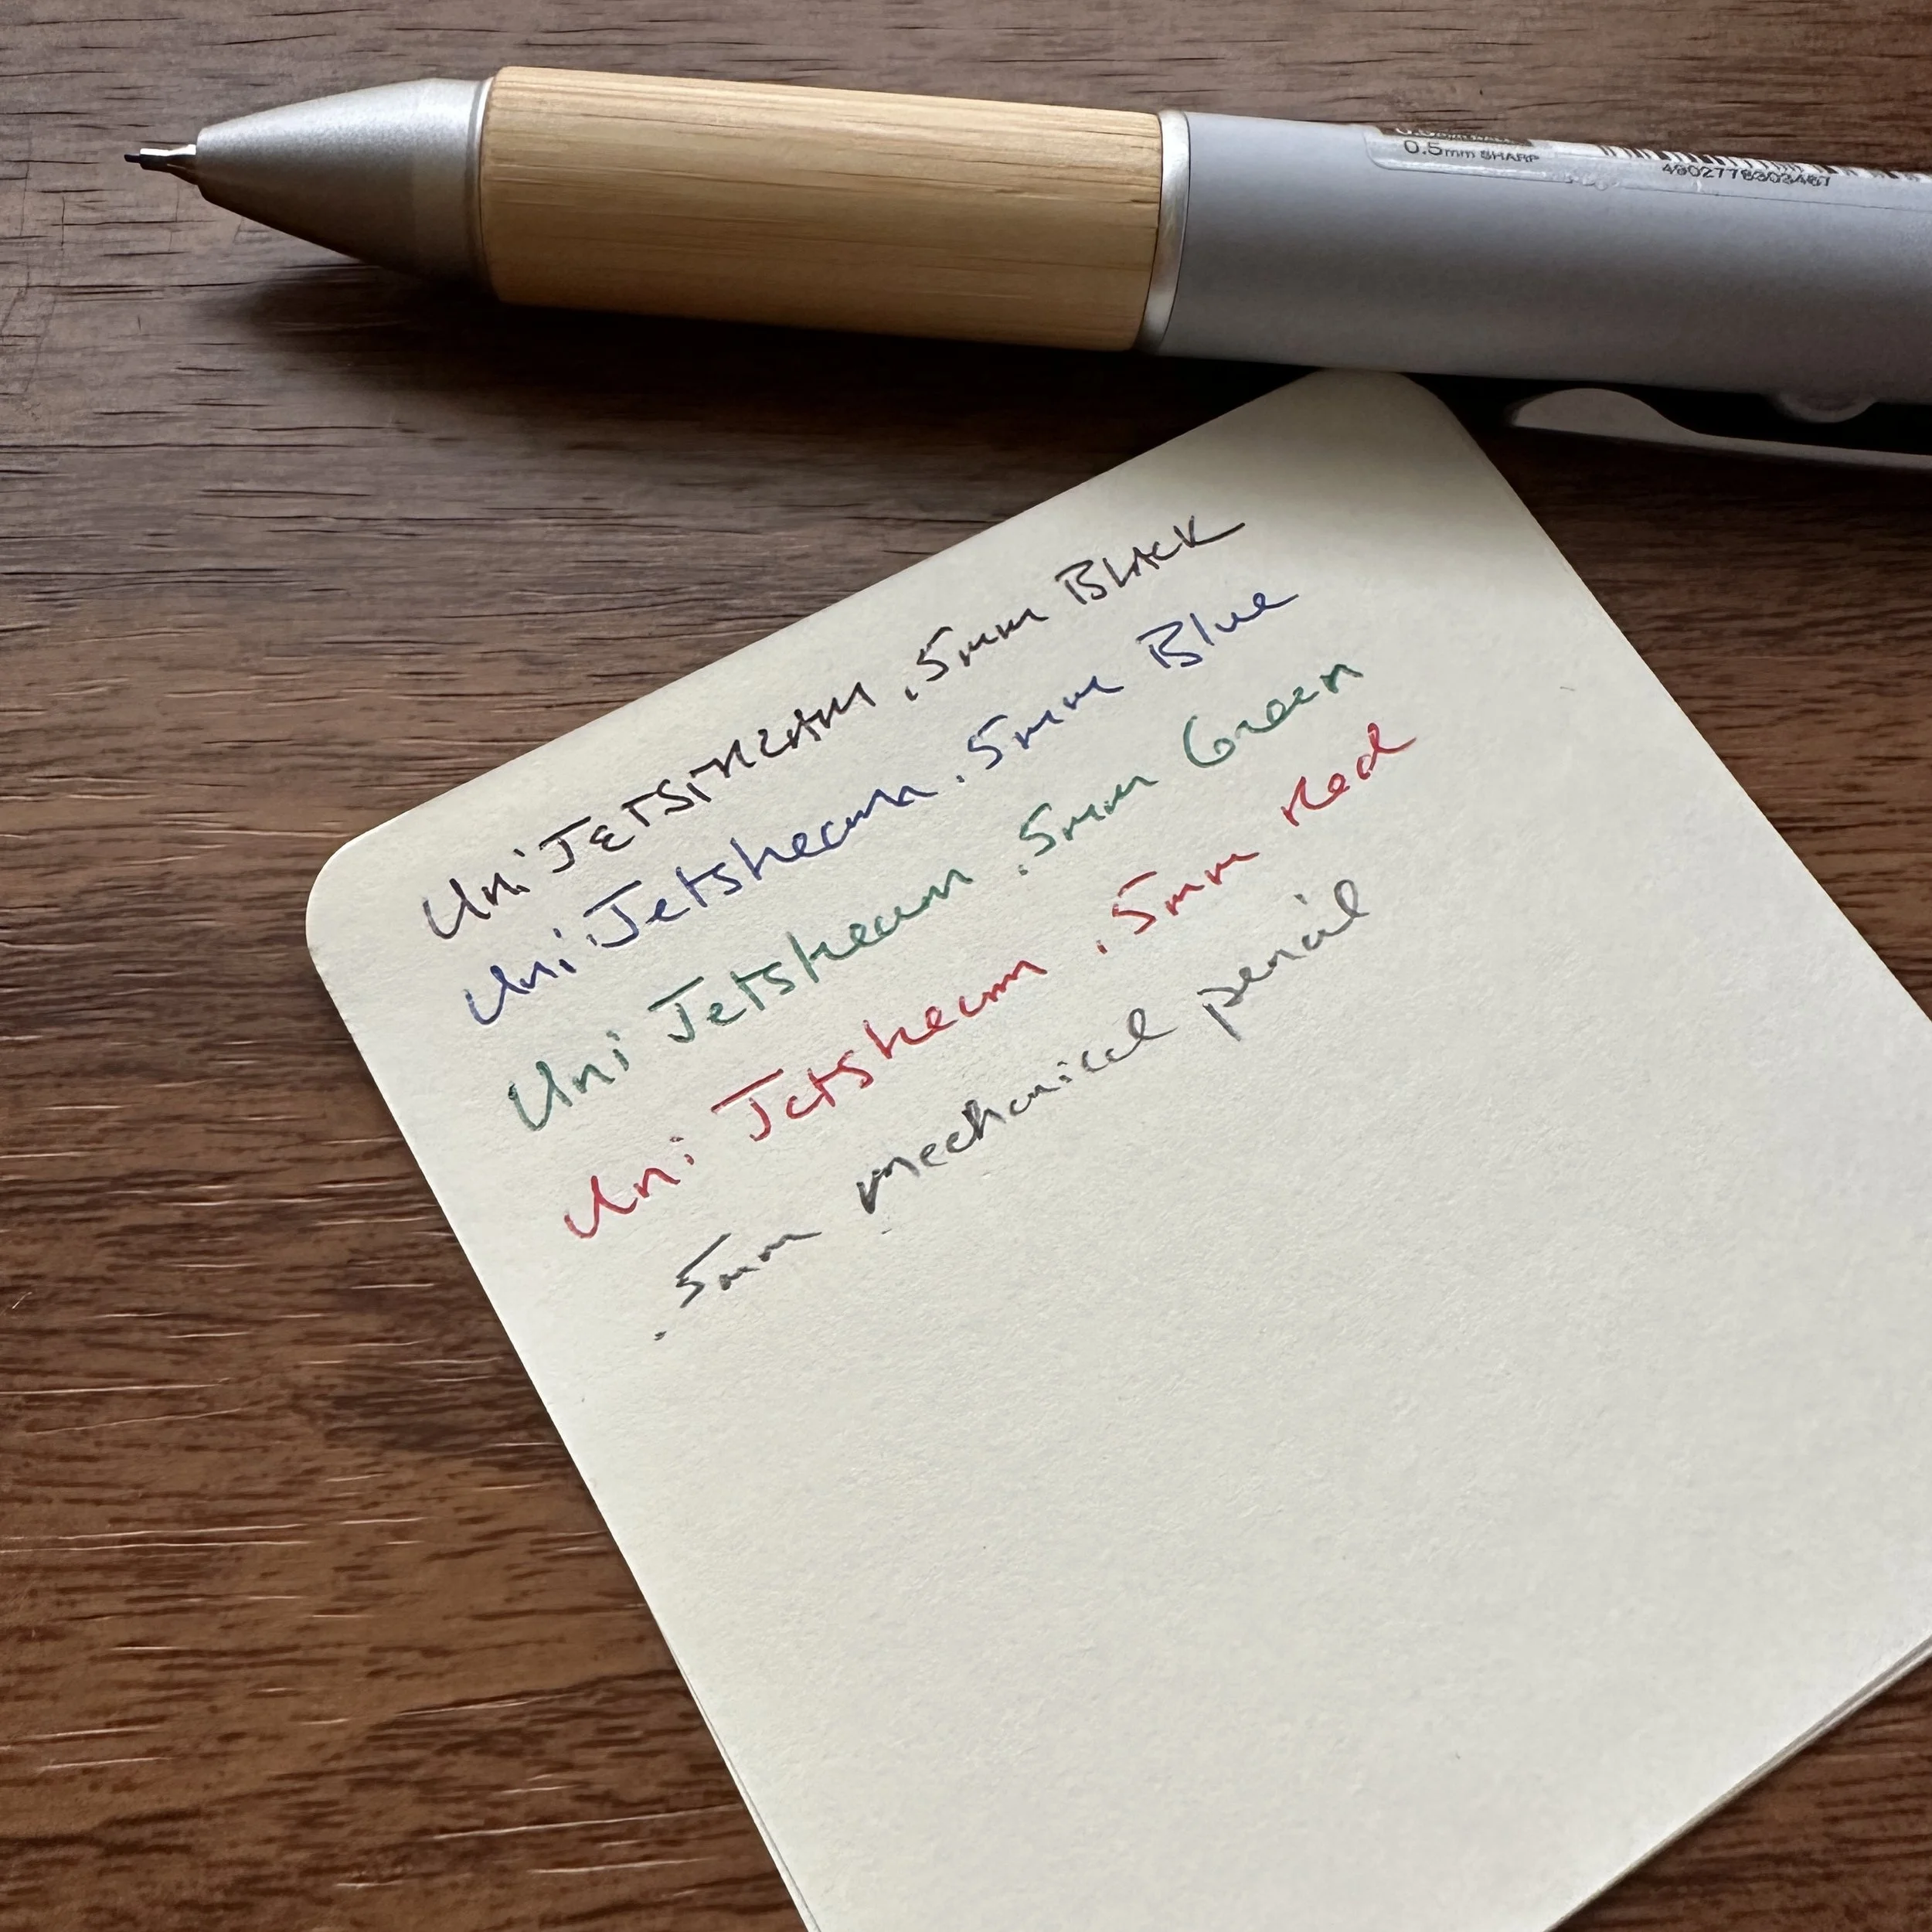 0.5mm SHARP
4902778303467
Uni JETSTREAM .5mm BLACK
Uni Jetstream .5mm Blue
Uni Jetstream .5mm Green
Uni Jetstream .5mm Red
.5mm mechanical pencil